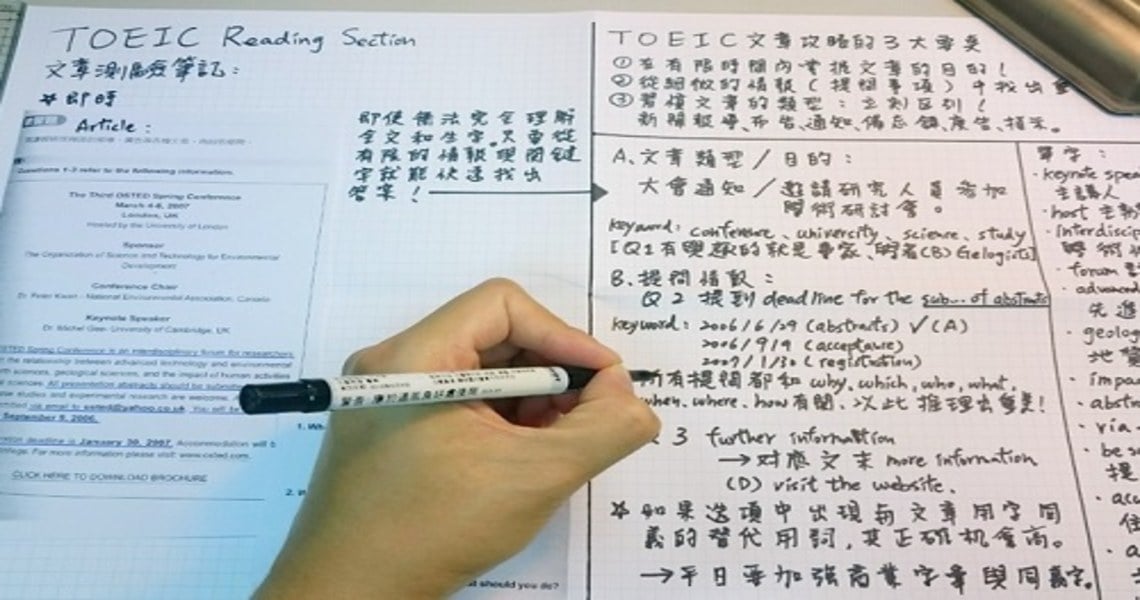 TOEIC Reading Section
文章測驗筆記：
* 即時
Article：
Questions 1-3 refer to the following information.
The Third OSTED Spring Conference
March 4-6, 2007
London, UK
Hosted by the University of London
Sponsor
The Organization of Science and Technology for Environmental
Development
Conference Chair
Dr. Peter Kwon - National Environmental Association, Canada
Keynote Speaker
Dr. Michel Gee- University of Cambridge, UK
OSTED Spring Conference is an interdisciplinary forum for researchers
the relationship between advanced technology and environmental
th sciences, geological sciences, and the impact of human activities
sciences. All presentation abstracts should be submitted
se studies and experimental research are welcome.
via email to osted@yahoo.co.uk. You will be
September 9, 2006.
deadline is January 30, 2007. Accommodation will b
For more information please visit: www.osted.com.
CLICK HERE TO DOWNLOAD BROCHURE
1. Wh
2. W
should you do?
即使無法完全理解
全文和生字,只要從
有限的情報與關鍵
字就能快速找出
答案！
TOEIC文章攻略的3大要素
① 在有限時間內掌握文章的目的！
② 從細微的情報(提問事項)中找出
③ 習慣文章的類型：立刻區別！
新聞報導、布告、通知、備忘錄、廣告、損益。
A. 文章類型/目的：
大會通知/邀請研究人員參加
學術研討會。
keyword: conference, university, science, study
[Q1有興趣的就是專家、學者(B) Gelogists]
B. 提問情報：
Q2 提到 deadline for the sub... of abstracts
keyword: 2006/6/29 (abstracts) ✓(A)
2006/9/9 (acceptance)
2007/1/30 (registration)
所有提問都和 why, which, who, what,
when, where, how 有關、以此推理出重點！
3 further information
→ 对應文末 more information
(D) visit the website.
* 如果選項中出現與文章用字同
義的替代用詞, 其正確機會高。
→ 平日要加強商業字彙與同義字。
單字：
· keynote spea
主講人
· host 主
· interdiscip
學術
· forum
· advanced
先進
· geolog
地
· impa
· abst
· via
· be s
提
· acc
住
· a